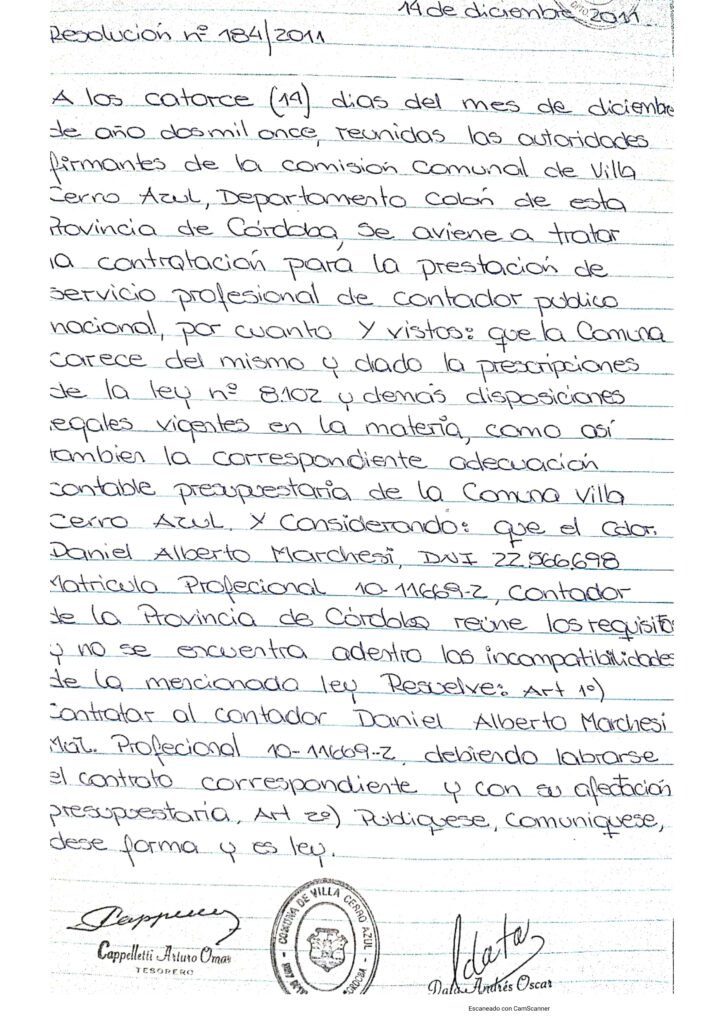 14 de diciembre 2011
Resolución nº 184/2011
A los catorce (14) dias del mes de diciembre
de año dosmil once, reunidas las autoridades
firmantes de la comisión Comunal de Villa
Cerro Azul, Departamento Colón de esta
Provincia de Córdoba, se aviene a tratar
la contratación para la prestación de
servicio profesional de contador publico
nacional, por cuanto Y vistos: que la Comuna
carece del mismo y dado la prescripciones
de la ley nº 8.102 y demás disposiciones
legales vigentes en la materia, como así
tambien la correspondiente adecuación
contable presupuestaria de la Comuna Villa
Cerro Azul. Y Considerando: que el Cdor.
Daniel Alberto Marchesi, DNI 22.566.698
Matricula Profecional 10-11669-2, Contador
de la Provincia de Córdoba reúne los requisitos
y no se encuentra adentro las incompatibilidades
de la mencionada ley Resuelve: Art 1º)
Contratar al contador Daniel Alberto Marchesi
Mat. Profecional 10-11669-2, debiendo labrarse
el contrato correspondiente y con su afectación
presupuestaria, Art 2º) Publiquese, Comuniquese,
dese forma y es ley.
COMUNA DE VILLA CERRO AZUL
CORDOBA
Cappelletti Arturo Omar
TESORERO
Data Andrés Oscar
Escaneado con CamScanner